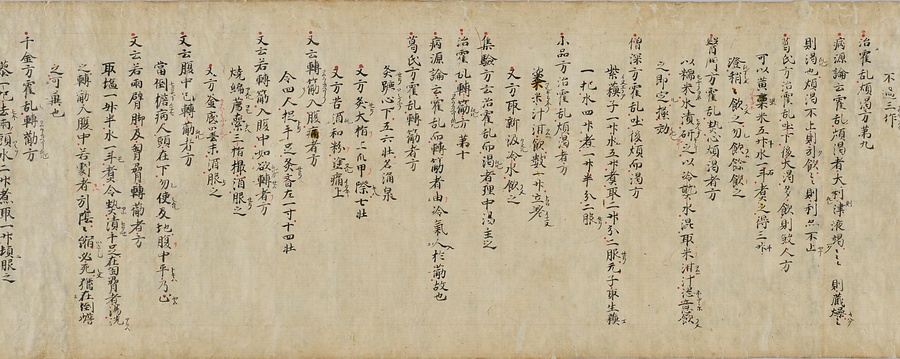 不過三作
治霍乱煩渇方第九
病源論云霍乱煩渇者大利津液竭々々則蔵燥々々
則渇也煩渇不止則引飲々々則利不止
葛氏方治霍乱吐下後大渇多飲則敗人方
可以黄粟米五升水一斗煮之得三升
澄稍々飲之勿飲餘飲之
以糯米水漬研之以冷熟水混取米泔汁恣意飲
之即定極効
僧深方霍乱吐後煩而渇方
紫蘇子一升水五升煮取二升分二服无子取生蘇
一把水四升煮一升半分二服
小品方治霍乱煩渇者方
粱米汁泔飲数升立差
又方取新汲冷水飲之
集験方云治霍乱而渇者理中湯主之
治霍乱轉筋方第十
病源論云霍乱而轉筋者由冷氣入於筋故也
葛氏方霍乱轉筋者方
灸蹶心下五六壮名涌泉
又方灸大指上爪甲際七壮
又方苦酒和粉塗痛上
又云轉筋入腹痛者方
令四人捉手足灸斉左一寸十四壮
又云若轉筋入腹中如欲轉者方
燒綿薦索二指撮酒服之
又方釜底墨末酒服之
又云腹中已轉筋者方
當倒擔病人頭在下勿使及地腹中平乃止
又云若兩臂脚及胸脅轉筋者方
取塩一升半水一斗煮令熱漬手足在胸脅者湯洗
之轉筋入腹中若到者引陰々縮必死猶在倒擔
之可冀也
千金方霍乱轉筋方